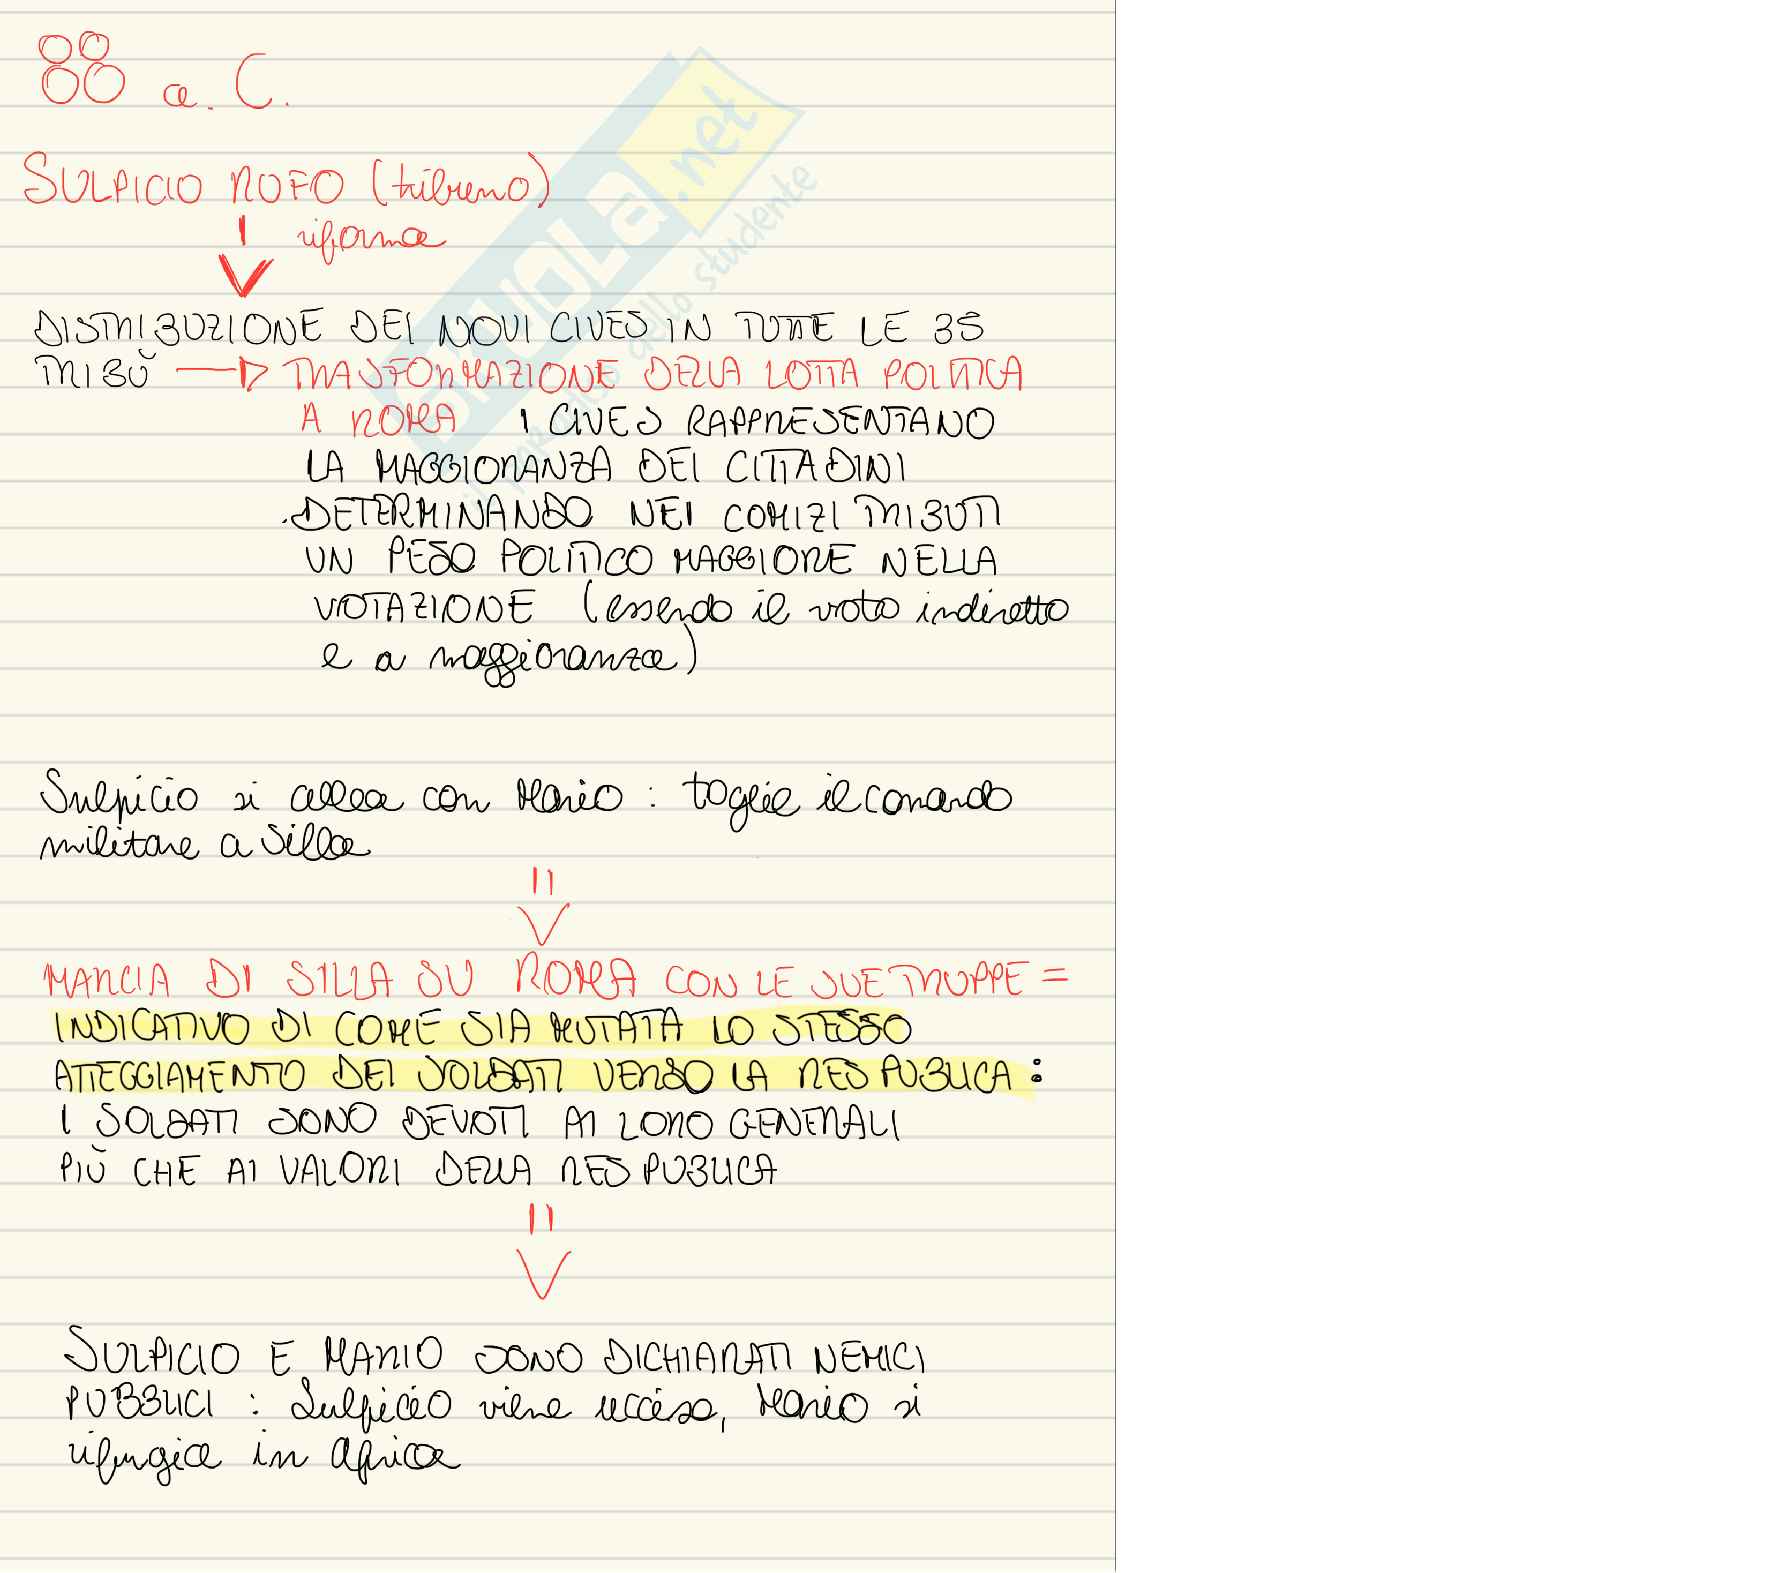 88 a.C.
SULPICIO ROFO (tribuno)
riforma
DISTRIBUZIONE DEI NOVI CIVES IN TUTTE LE 35
TRIBÙ → TRASFORMAZIONE DELLA LOTTA POLITICA
A ROMA I CIVES RAPPRESENTANO
LA MAGGIORANZA DEI CITTADINI
DETERMINANDO NEI COMIZI TRIBUTI
UN PESO POLITICO MAGGIORE NELLA
VOTAZIONE (essendo il voto indiretto
e a maggioranza)
Sulpicio si allea con Mario : toglie il comando
militare a Silla
MARCIA DI SILLA SU ROMA CON LE SUE TRUPPE =
INDICATIVO DI COME SIA MUTATA LO STESSO
ATTEGGIAMENTO DEI SOLDATI VERSO LA RES PUBLICA :
I SOLDATI SONO DEVOTI AI LORO GENERALI
PIÙ CHE AI VALORI DELLA RES PUBLICA
SULPICIO E MARIO SONO DICHIARATI NEMICI
PUBBLICI : Sulpicio viene ucciso, Mario si
rifugia in Africa
SKUOLA.net